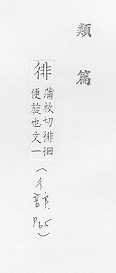 類篇
徘
蒲枚切徘徊
便旋也文一